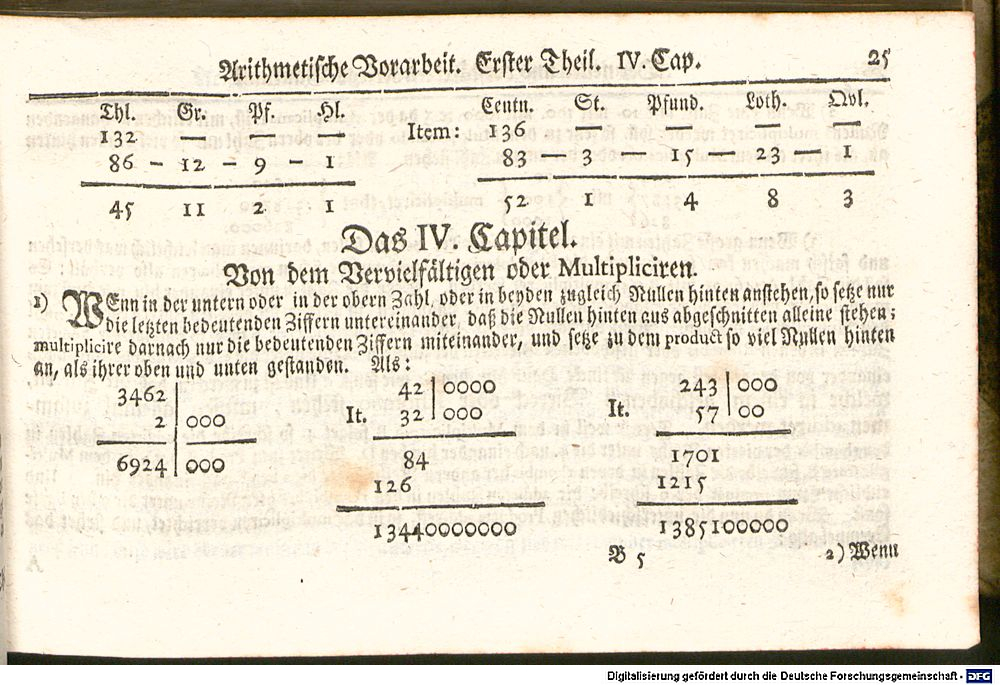 Arithmetische Vorarbeit. Erster Theil. IV. Cap. 25
Thl. Gr. Pf. Hl.
132 — — —
86 – 12 – 9 – 1
45 11 2 1
Centn. St. Pfund. Loth. Qvl.
Item: 136 — — — —
83 – 3 – 15 – 23 – 1
52 1 4 8 3
Das IV. Capitel.
Von dem Vervielfältigen oder Multipliciren.
1) WEnn in der untern oder in der obern Zahl, oder in beyden zugleich Nullen hinten anstehen, so setze nur
die letzten bedeutenden Ziffern untereinander, daß die Nullen hinten aus abgeschnitten alleine stehen;
multiplicire darnach nur die bedeutenden Ziffern miteinander, und setze zu dem product so viel Nullen hinten
an, als ihrer oben und unten gestanden. Als:
3462
2 | 000
6924 | 000
42 | 0000
It. 32 | 000
84
126
13440000000
243 | 000
It. 57 | 00
1701
1215
1385100000
B 5 2) Wenn
Digitalisierung gefördert durch die Deutsche Forschungsgemeinschaft - DFG